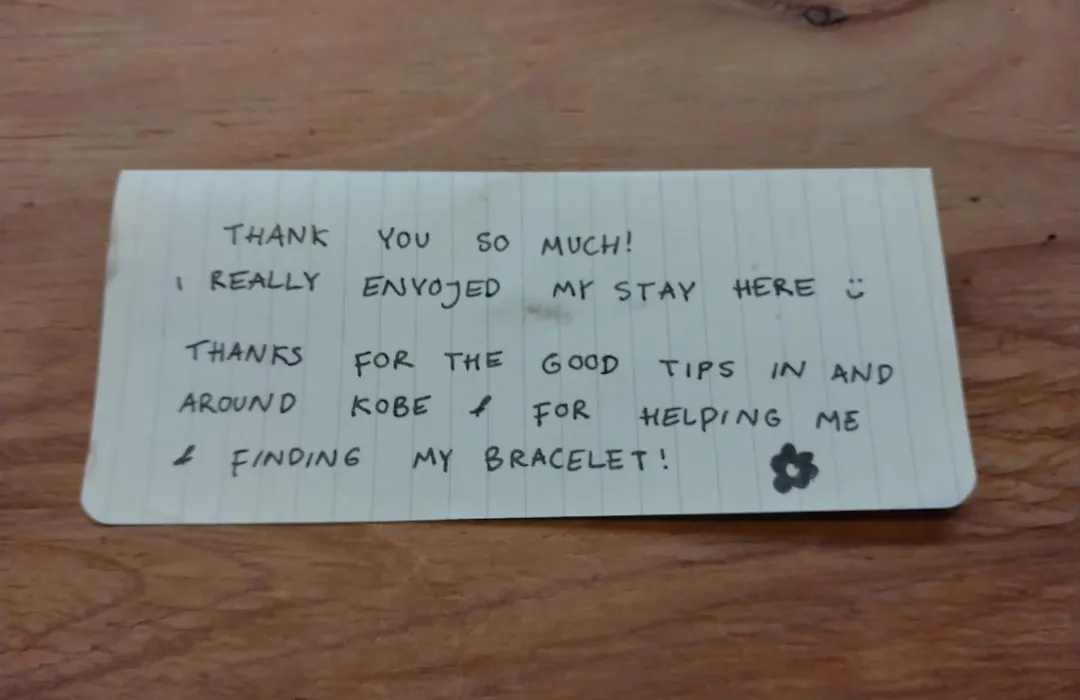 THANK YOU SO MUCH!
I REALLY ENVOJED MY STAY HERE :)
THANKS FOR THE GOOD TIPS IN AND
AROUND KOBE & FOR HELPING ME
& FINDING MY BRACELET!